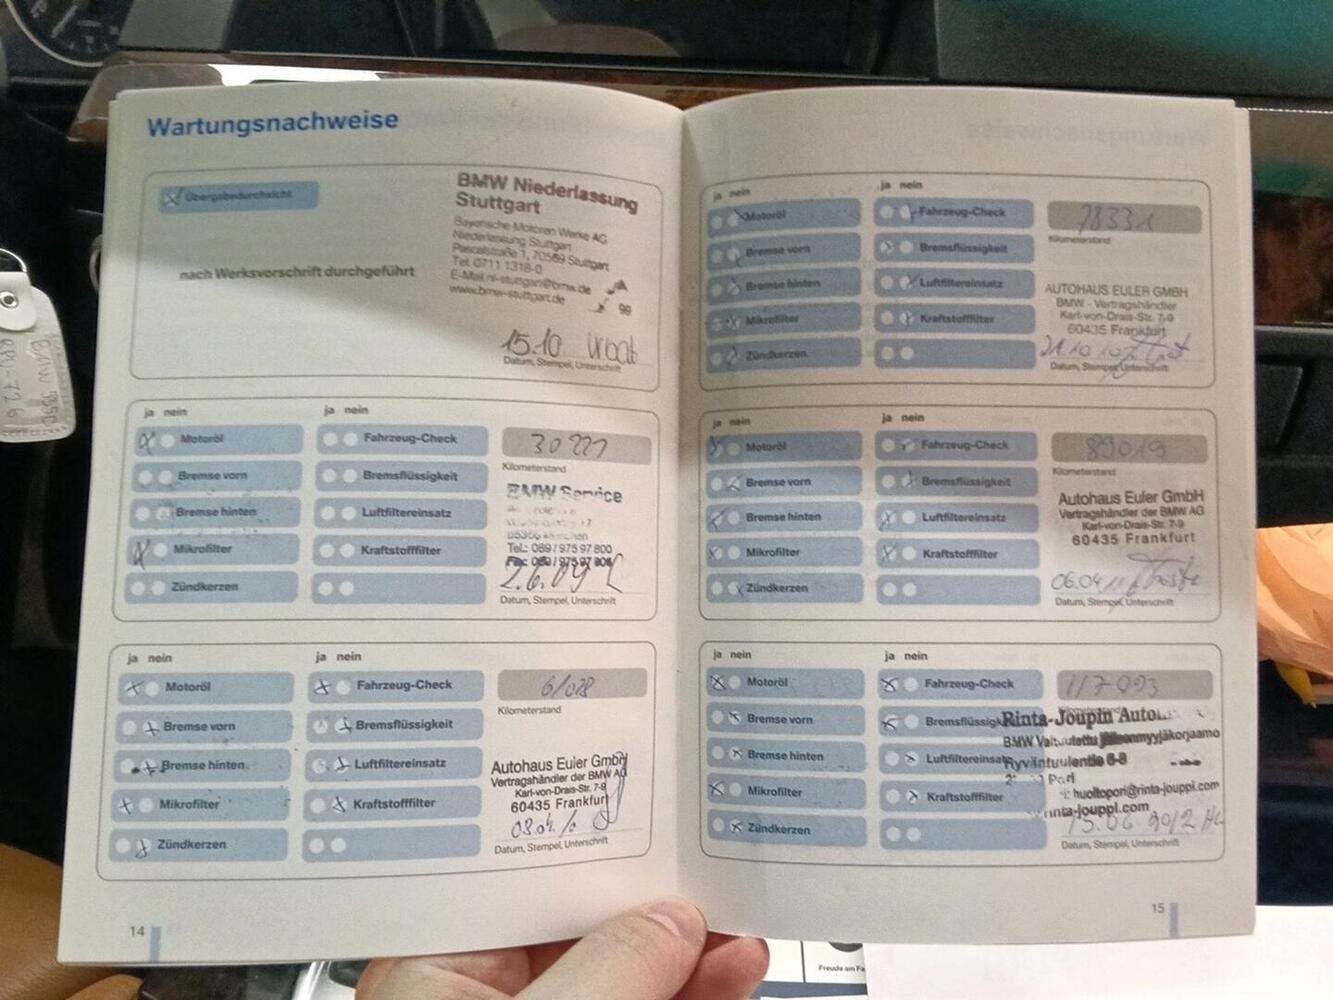 Wartungsnachweise
Übergabedurchsicht
nach Werksvorschrift durchgeführt
BMW Niederlassung
Stuttgart
Bayerische Motoren Werke AG
Niederlassung Stuttgart
Pascalstraße 1, 70569 Stuttgart
Tel. 0711 1318-0
E-Mail nl-stuttgart@bmw.de
www.bmw-stuttgart.de
99
15.10.
Datum, Stempel, Unterschrift
ja nein
ja nein
Motoröl
Fahrzeug-Check
Bremse vorn
Bremsflüssigkeit
Bremse hinten
Luftfiltereinsatz
Mikrofilter
Kraftstofffilter
Zündkerzen
30221
Kilometerstand
BMW Service
Tel.: 089 / 975 97 800
Fax: 089 / 975 97 806
2.6.09
Datum, Stempel, Unterschrift
ja nein
ja nein
Motoröl
Fahrzeug-Check
Bremse vorn
Bremsflüssigkeit
Bremse hinten
Luftfiltereinsatz
Mikrofilter
Kraftstofffilter
Zündkerzen
61028
Kilometerstand
Autohaus Euler GmbH
Vertragshändler der BMW AG
Karl-von-Drais-Str. 7-9
60435 Frankfurt
Datum, Stempel, Unterschrift
14
ja nein
ja nein
Motoröl
Fahrzeug-Check
Bremse vorn
Bremsflüssigkeit
Bremse hinten
Luftfiltereinsatz
Mikrofilter
Kraftstofffilter
Zündkerzen
78331
Kilometerstand
AUTOHAUS EULER GMBH
BMW - Vertragshändler
Karl-von-Drais-Str. 7-9
60435 Frankfurt
21.10.10
Datum, Stempel, Unterschrift
ja nein
ja nein
Motoröl
Fahrzeug-Check
Bremse vorn
Bremsflüssigkeit
Bremse hinten
Luftfiltereinsatz
Mikrofilter
Kraftstofffilter
Zündkerzen
89019
Kilometerstand
Autohaus Euler GmbH
Vertragshändler der BMW AG
Karl-von-Drais-Str. 7-9
60435 Frankfurt
06.04.11
Datum, Stempel, Unterschrift
ja nein
ja nein
Motoröl
Fahrzeug-Check
Bremse vorn
Bremse hinten
Luftfiltereinsatz
Mikrofilter
Kraftstofffilter
Zündkerzen
117093
Rinta-Joupin
BMW
6-8
Pori
huoltopori@rinta-jouppi.com
15.06 2012
Datum, Stempel, Unterschrift
15